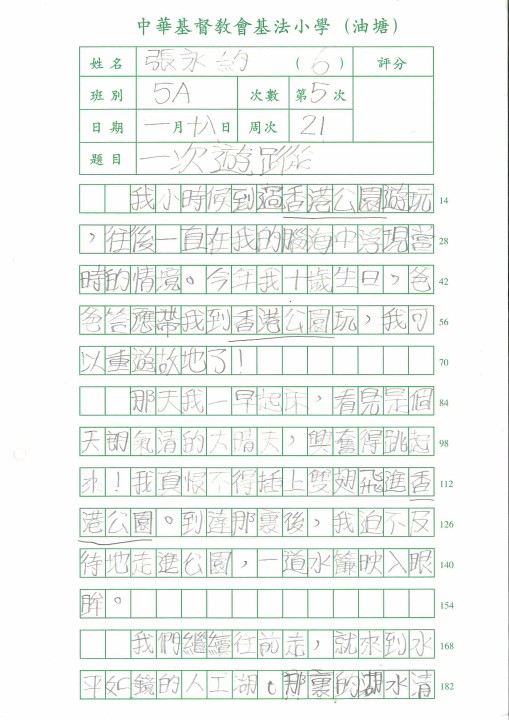 中華基督教會基法小學（油塘）
姓名 張永約 （6） 評分
班別 5A 次數 第5次
日期 一月十八日 周次 21
題目 一次遊蹤
我小時候到過香港公園遊玩 14
，往後一直在我的腦海中浮現當 28
時的情境。今年我十歲生日，爸 42
爸答應帶我到香港公園玩，我可 56
以重遊故地了！ 70
那天我一早起床，看見是個 84
天朗氣清的大晴天，興奮得跳起 98
來！我真恨不得插上雙翅飛進香 112
港公園。到達那裏後，我迫不及 126
待地走進公園，一道水簾映入眼 140
眸。 154
我們繼續往前走，就來到水 168
平如鏡的人工湖。那裏的湖水清 182